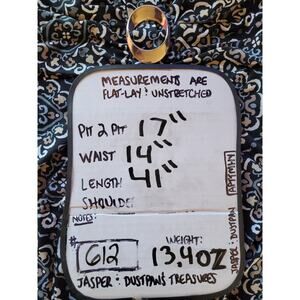 MEASUREMENTS ARE
FLAT-LAY & UNSTRETCHED
PIT 2 PIT 17"
WAIST 14"
LENGTH 41"
SHOULDE
NOTES:
# 612
WEIGHT:
13.4OZ
JASPER & DUSTPAN'S TREASURES
JASPER & DUSTPAN